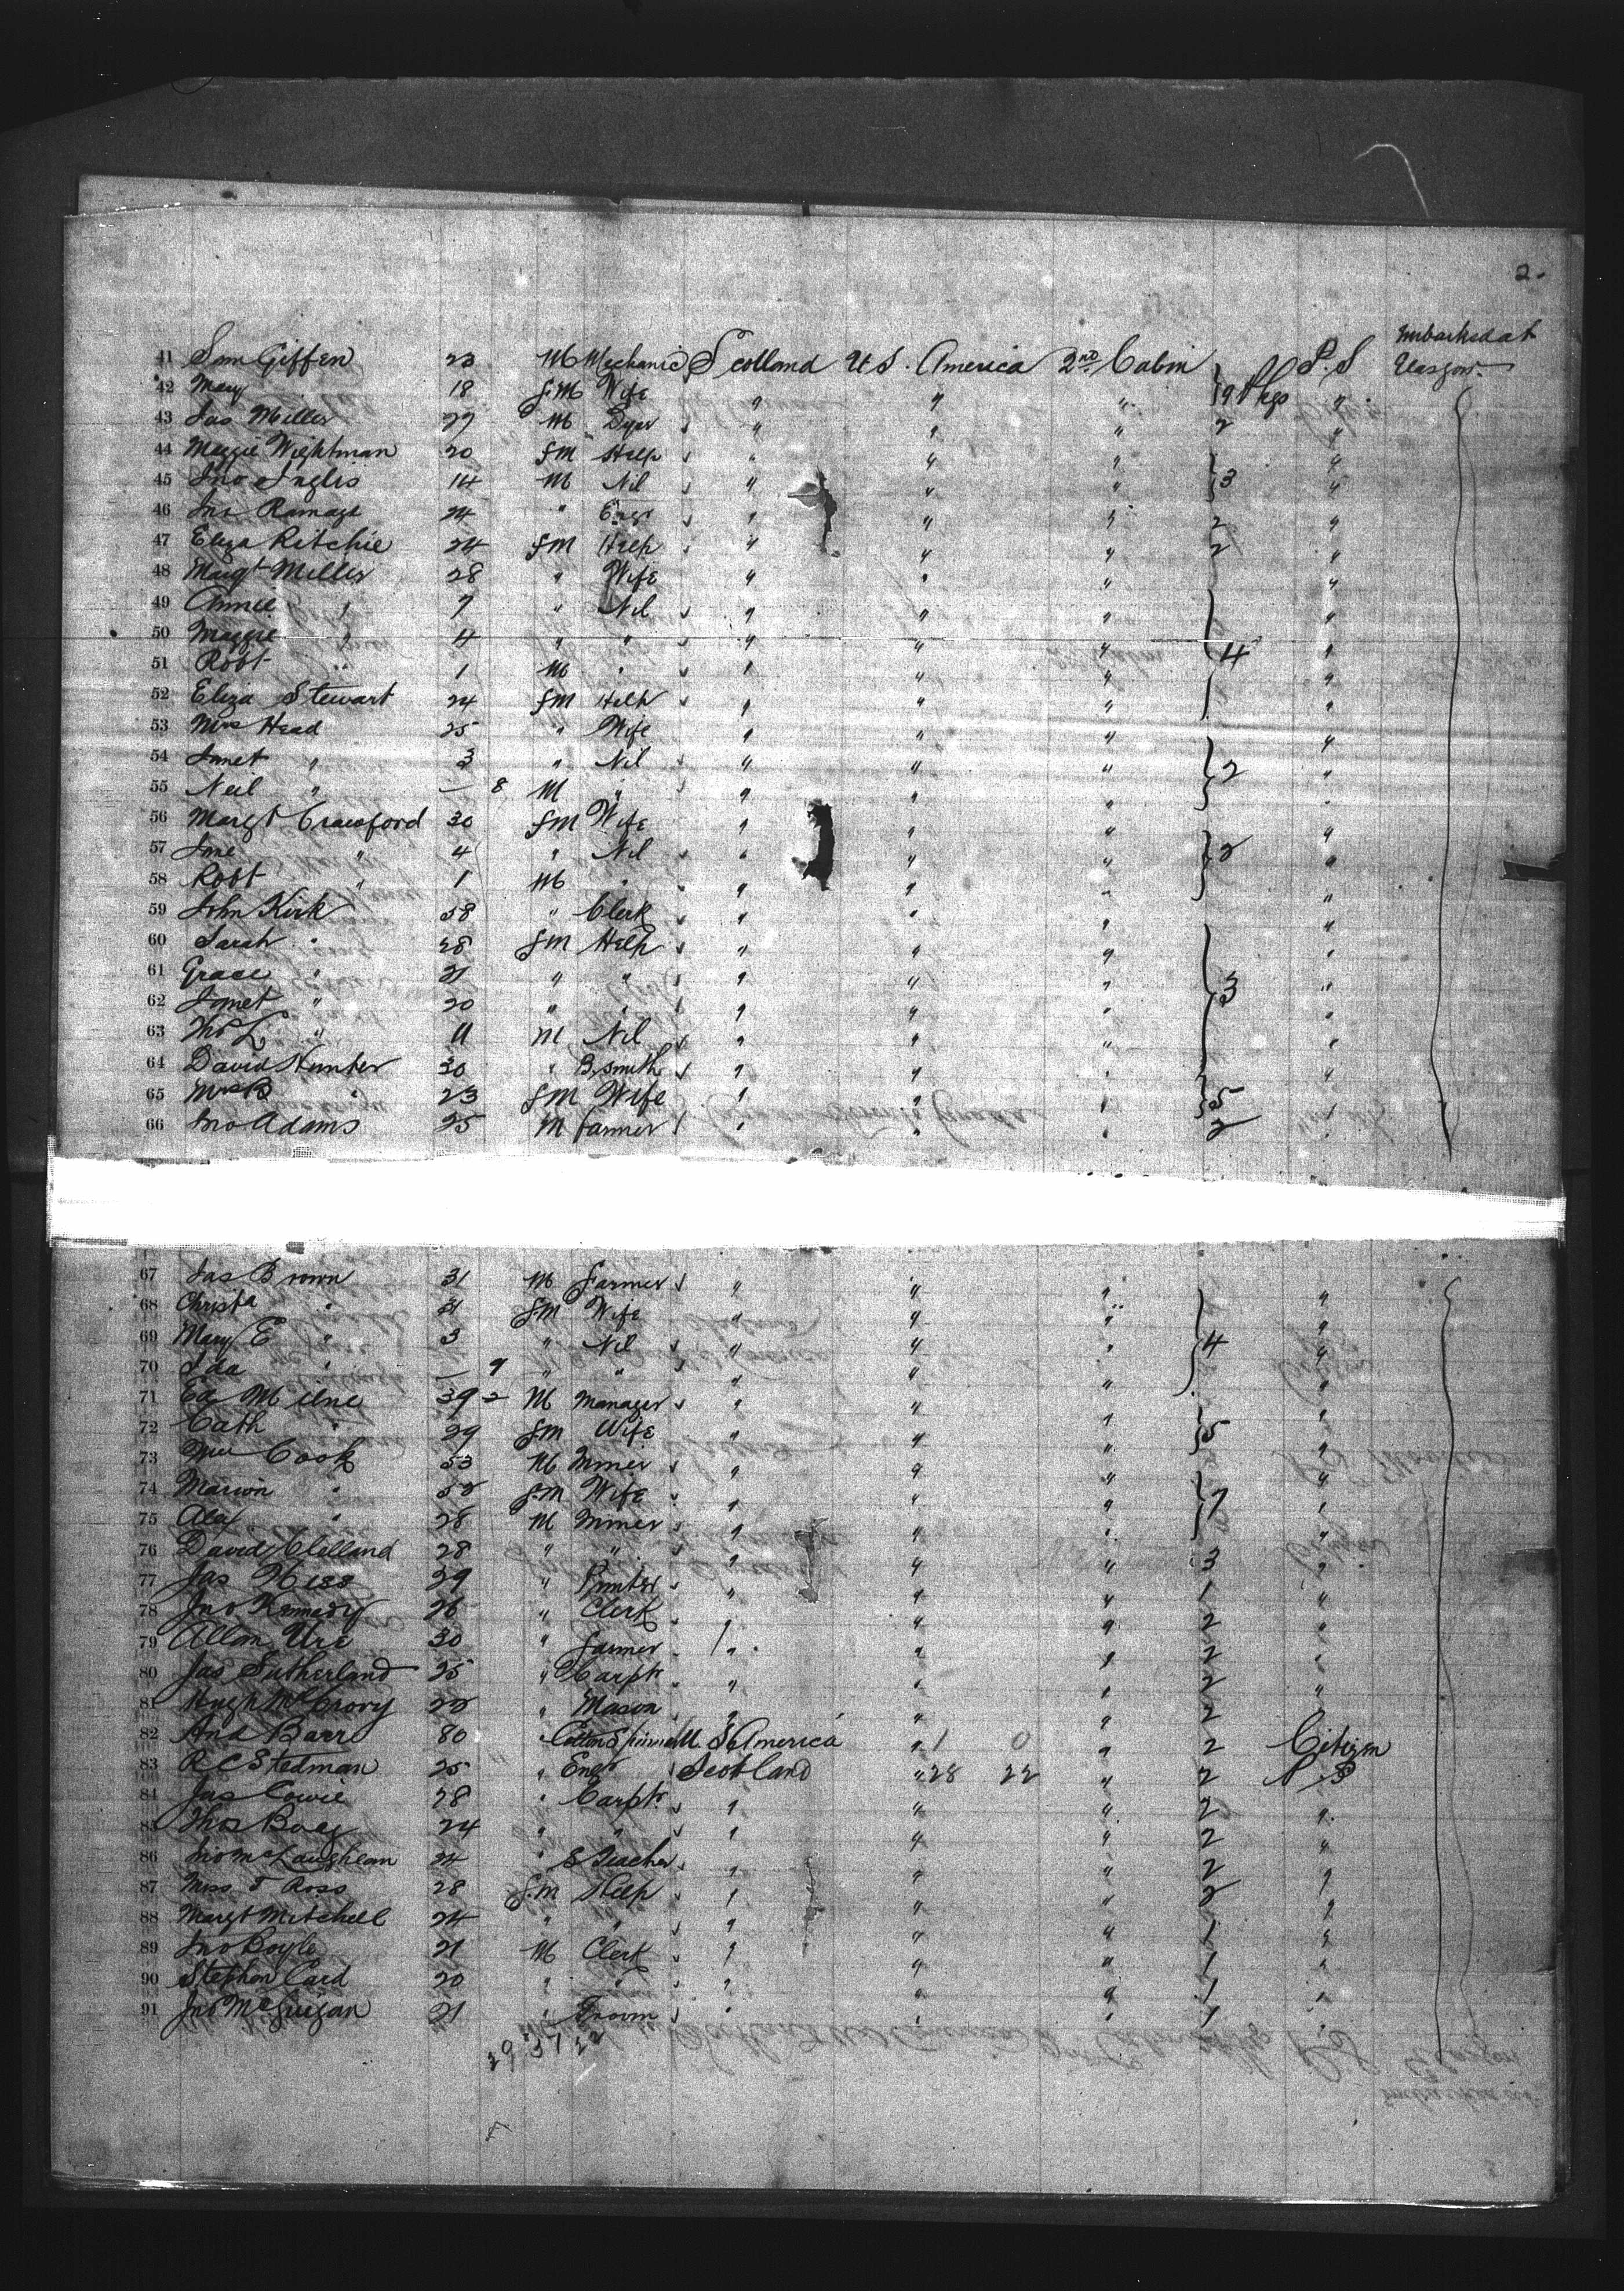 2.
Embarked at
41 Sam Giffen 23 M Mechanic Scotland U S. America 2nd Cabin 9 Pkgs P.S Glasgow.
42 Mary 18 f.M Wife " " " "
43 Jas Miller 27 M Dyer " " " 2 "
44 Maggie Wightman 20 fM Help " " " "
45 Jno Inglis 14 M Nil " " " 3 "
46 Jno Ramage 24 " Engr " " " 2 "
47 Eliza Ritchie 24 fM Help " " " 2 "
48 Margt Miller 28 " Wife " " " "
49 Annie " 7 " Nil " " " "
50 Maggie " 4 " " " " " 4 "
51 Robt " 1 M " " " " "
52 Eliza Stewart 24 fM Help " " " "
53 Mrs Head 25 " Wife " " " "
54 Janet " 3 " Nil " " " 2 "
55 Neil " — 8 M " " " " "
56 Margt Crawford 30 fM Wife " " " "
57 Jane " 4 " Nil " " " 2 "
58 Robt " 1 M " " " " "
59 John Kirk 58 " Clerk " " " "
60 Sarah " 28 fM Help " " " "
61 Grace " 21 " " " " " 3 "
62 Janet " 20 " " " " " "
63 Ths L " 11 M Nil " " " "
64 David Hunter 30 " B,smith " " " "
65 Mrs B 23 fM Wife " " " 5
66 Jno Adams 25 M farmer " " " 2 "
67 Jas Brown 31 M Farmer " " " "
68 Christa " 31 f.M Wife " " " "
69 Mary E " 3 " Nil " " " 4 "
70 Ida " — 9 " " " " " "
71 Ed Milne 39 M Manager " " " "
72 Cath " 29 fM Wife " " " 5 "
73 Wm Cook 53 M Miner " " " "
74 Marion " 52 f.M Wife " " " 7 "
75 Alex " 28 M Miner " " " "
76 David Clelland 28 " " " " " 3 "
77 Jas Hess 29 " Printer " " " 1 "
78 Jno Kennedy 26 " Clerk " " " 2 "
79 Allan Ure 30 " farmer " " " 2 "
80 Jas Sutherland 25 " Carptr " " " 2 "
81 Hugh McCrory 22 " Mason " " " 2
82 And Barr 80 " Cotton Spinner U. S. America " 1 0 " 2 Citizen
83 R C Stedman 25 " Engr Scotland " 28 22 " 2 P S
84 Jas Cowie 28 " Carptr " " " 2 "
85 Thos Boag 24 " " " " " 2 "
86 Jno McLaughlan 24 " S Teacher " " " 2 "
87 Miss J Ross 28 f.m Help " " " 2 "
88 Margt Mitchell 24 " " " " " 1 "
89 Jno Boyle 21 M Clerk " " " 1 "
90 Stephen Card 20 " " " " " 1 "
91 Jno McGuigan 21 " Groom " " " 1 "
29 37 22